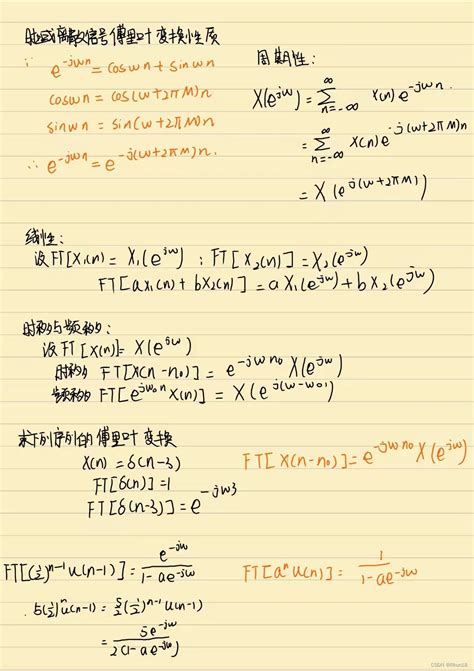 时域离散信号傅里叶变换性质
∵ e^{-jwn} = coswn + sinwn
coswn = cos(w+2πM)n
sinwn = sin(w+2πM)n
∴ e^{-jwn} = e^{-j(w+2πM)n}.
周期性:
X(e^{jw}) = ∑_{n=-∞}^{∞} x(n) e^{-jwn}.
= ∑_{n=-∞}^{∞} x(n) e^{-j(w+2πM)n}
= X(e^{j(w+2πM)})
线性:
设FT[X₁(n)] = X₁(e^{jw}) ; FT[X₂(n)] = X₂(e^{jw})
FT[aX₁(n) + bX₂(n)] = aX₁(e^{jw}) + bX₂(e^{jw})
时移与频移:
设FT[X(n)] = X(e^{jw})
时移 FT[X(n-n₀)] = e^{-jwn₀} X(e^{jw})
频移 FT[e^{jw₀n} X(n)] = X(e^{j(w-w₀)})
求下列序列的傅里叶变换
X(n) = δ(n-3)
FT[δ(n)] = 1
FT[δ(n-3)] = e^{-jw3}
FT[X(n-n₀)] = e^{-jwn₀} X(e^{jw})
FT[(½)^{n-1} u(n-1)] = e^{-jw} / (1-ae^{-jw})
FT[aⁿu(n)] = 1 / (1-ae^{-jw})
5(½)ⁿu(n-1) = 5/2 (½)^{n-1} u(n-1)
= 5e^{-jw} / 2(1-ae^{-jw})